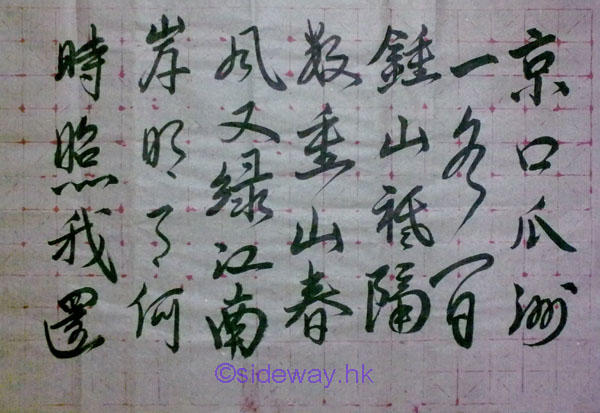 京口瓜洲
一水間
鍾山祗隔
數重山春
風又綠江南
岸明月何
時照我還
©sideway.hk